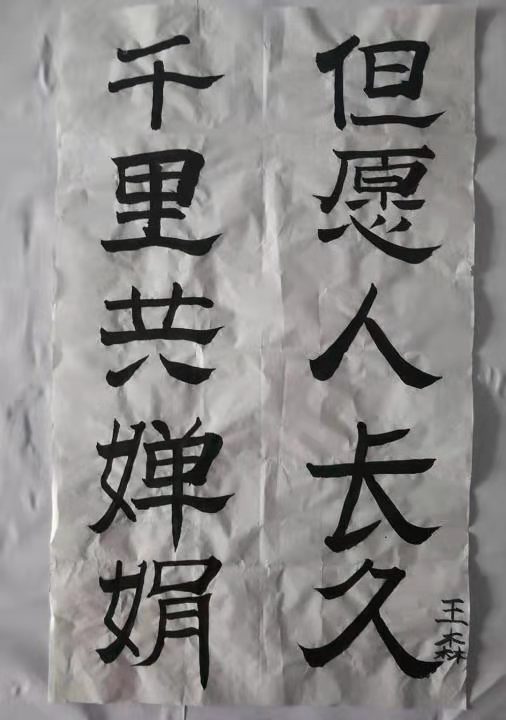 但愿人长久
千里共婵娟
王森